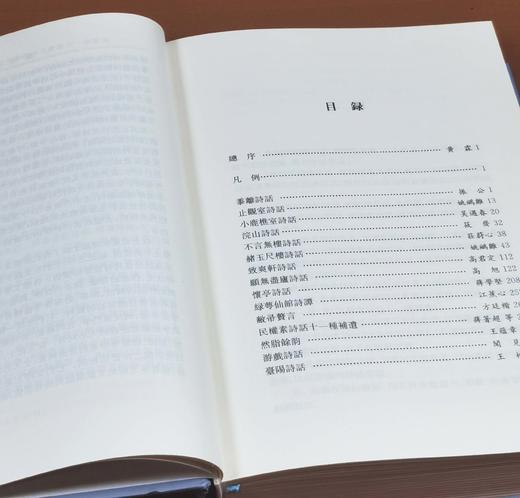 目 錄
總 序 黃 霖 1
凡 例 1
黍離詩話 振 公 1
止觀室詩話 姚鵷雛 13
小鹿樵室詩話 吴遇春 20
浣山詩話 32
不言無樓詩話 莊蔚心 38
赭玉尺樓詩話 姚鵷雛 43
致爽軒詩話 高君定 112
願無盡廬詩話 高 旭 122
懷亭詩話 蔣學堅 208
緑萼仙館詩譚 江蕉心
敝帚贅言 方廷楷
民權素詩話十一種補遺 蔣箸超 等
然脂餘韵 王藴章
游戲詩話 聞 見
臺陽詩話 王